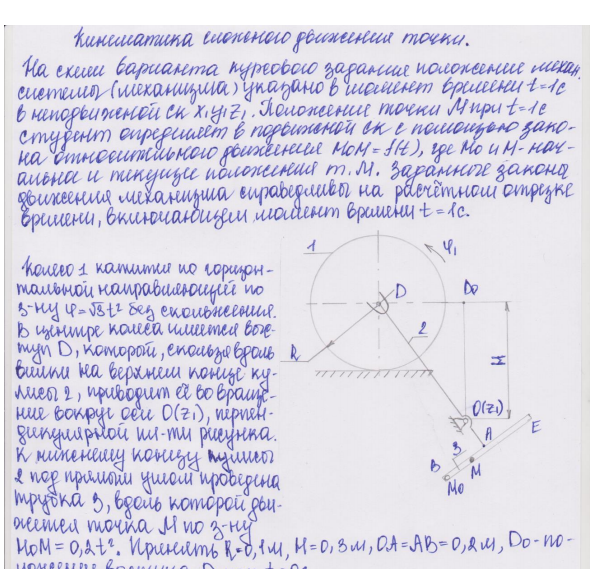 Кинематика сложного движения точки.
На схеме варианта курсового задания положение механ.
системы (механизма) указано в момент времени t=1с
в неподвижной ск x₁y₁z₁. Положение точки M при t=1с
студент определяет в подвижной ск с помощью зако-
на относительного движения M₀M=f(t), где M₀ и M-нач-
альна и текущие положения т. M. Заданные законы
движения механизма справедливы на расчётном отрезке
времени, включающем момент времени t=1с.
Колесо 1 катится по горизон-
тальной направляющей по
з-ну φ=√3t² без скольжения.
В центре колеса имеется выс-
туп D, который, скользя вдоль
вилки на верхнем конце ку-
лисы 2, приводит её во враще-
ние вокруг оси O(z₁), перпен-
дикулярной пл-ти рисунка.
К нижнему концу кулисы
2 под прямым углом проведена
трубка 3, вдоль которой дви-
жется точка M по з-ну
M₀M=0,2t². Принять R=0,1м, H=0,3м, OA=AB=0,2м, D₀-по-
1
φ₁
D
D₀
2
R
H
O(z₁)
A
E
3
B
M
M₀